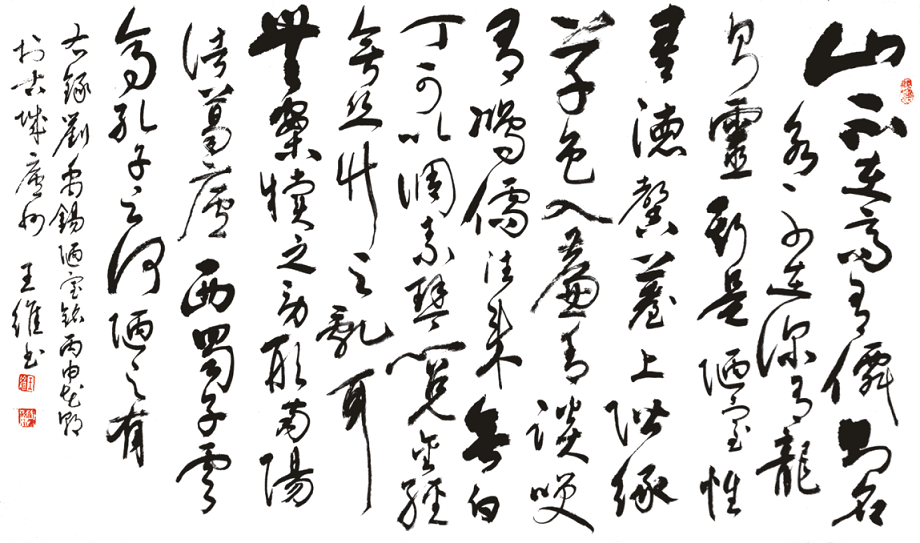 山不在高有僊則名
水不在深有龍
則靈斯是陋室惟
吾德馨苔上階緑
草色入簾青談笑
有鴻儒往來無白
丁可以調素琴閱金經
無絲竹之亂耳
無案牘之勞形南陽
諸葛廬西蜀子雲
亭孔子云何陋之有
右録劉禹錫陋室銘丙申
於古城廬州 王維書